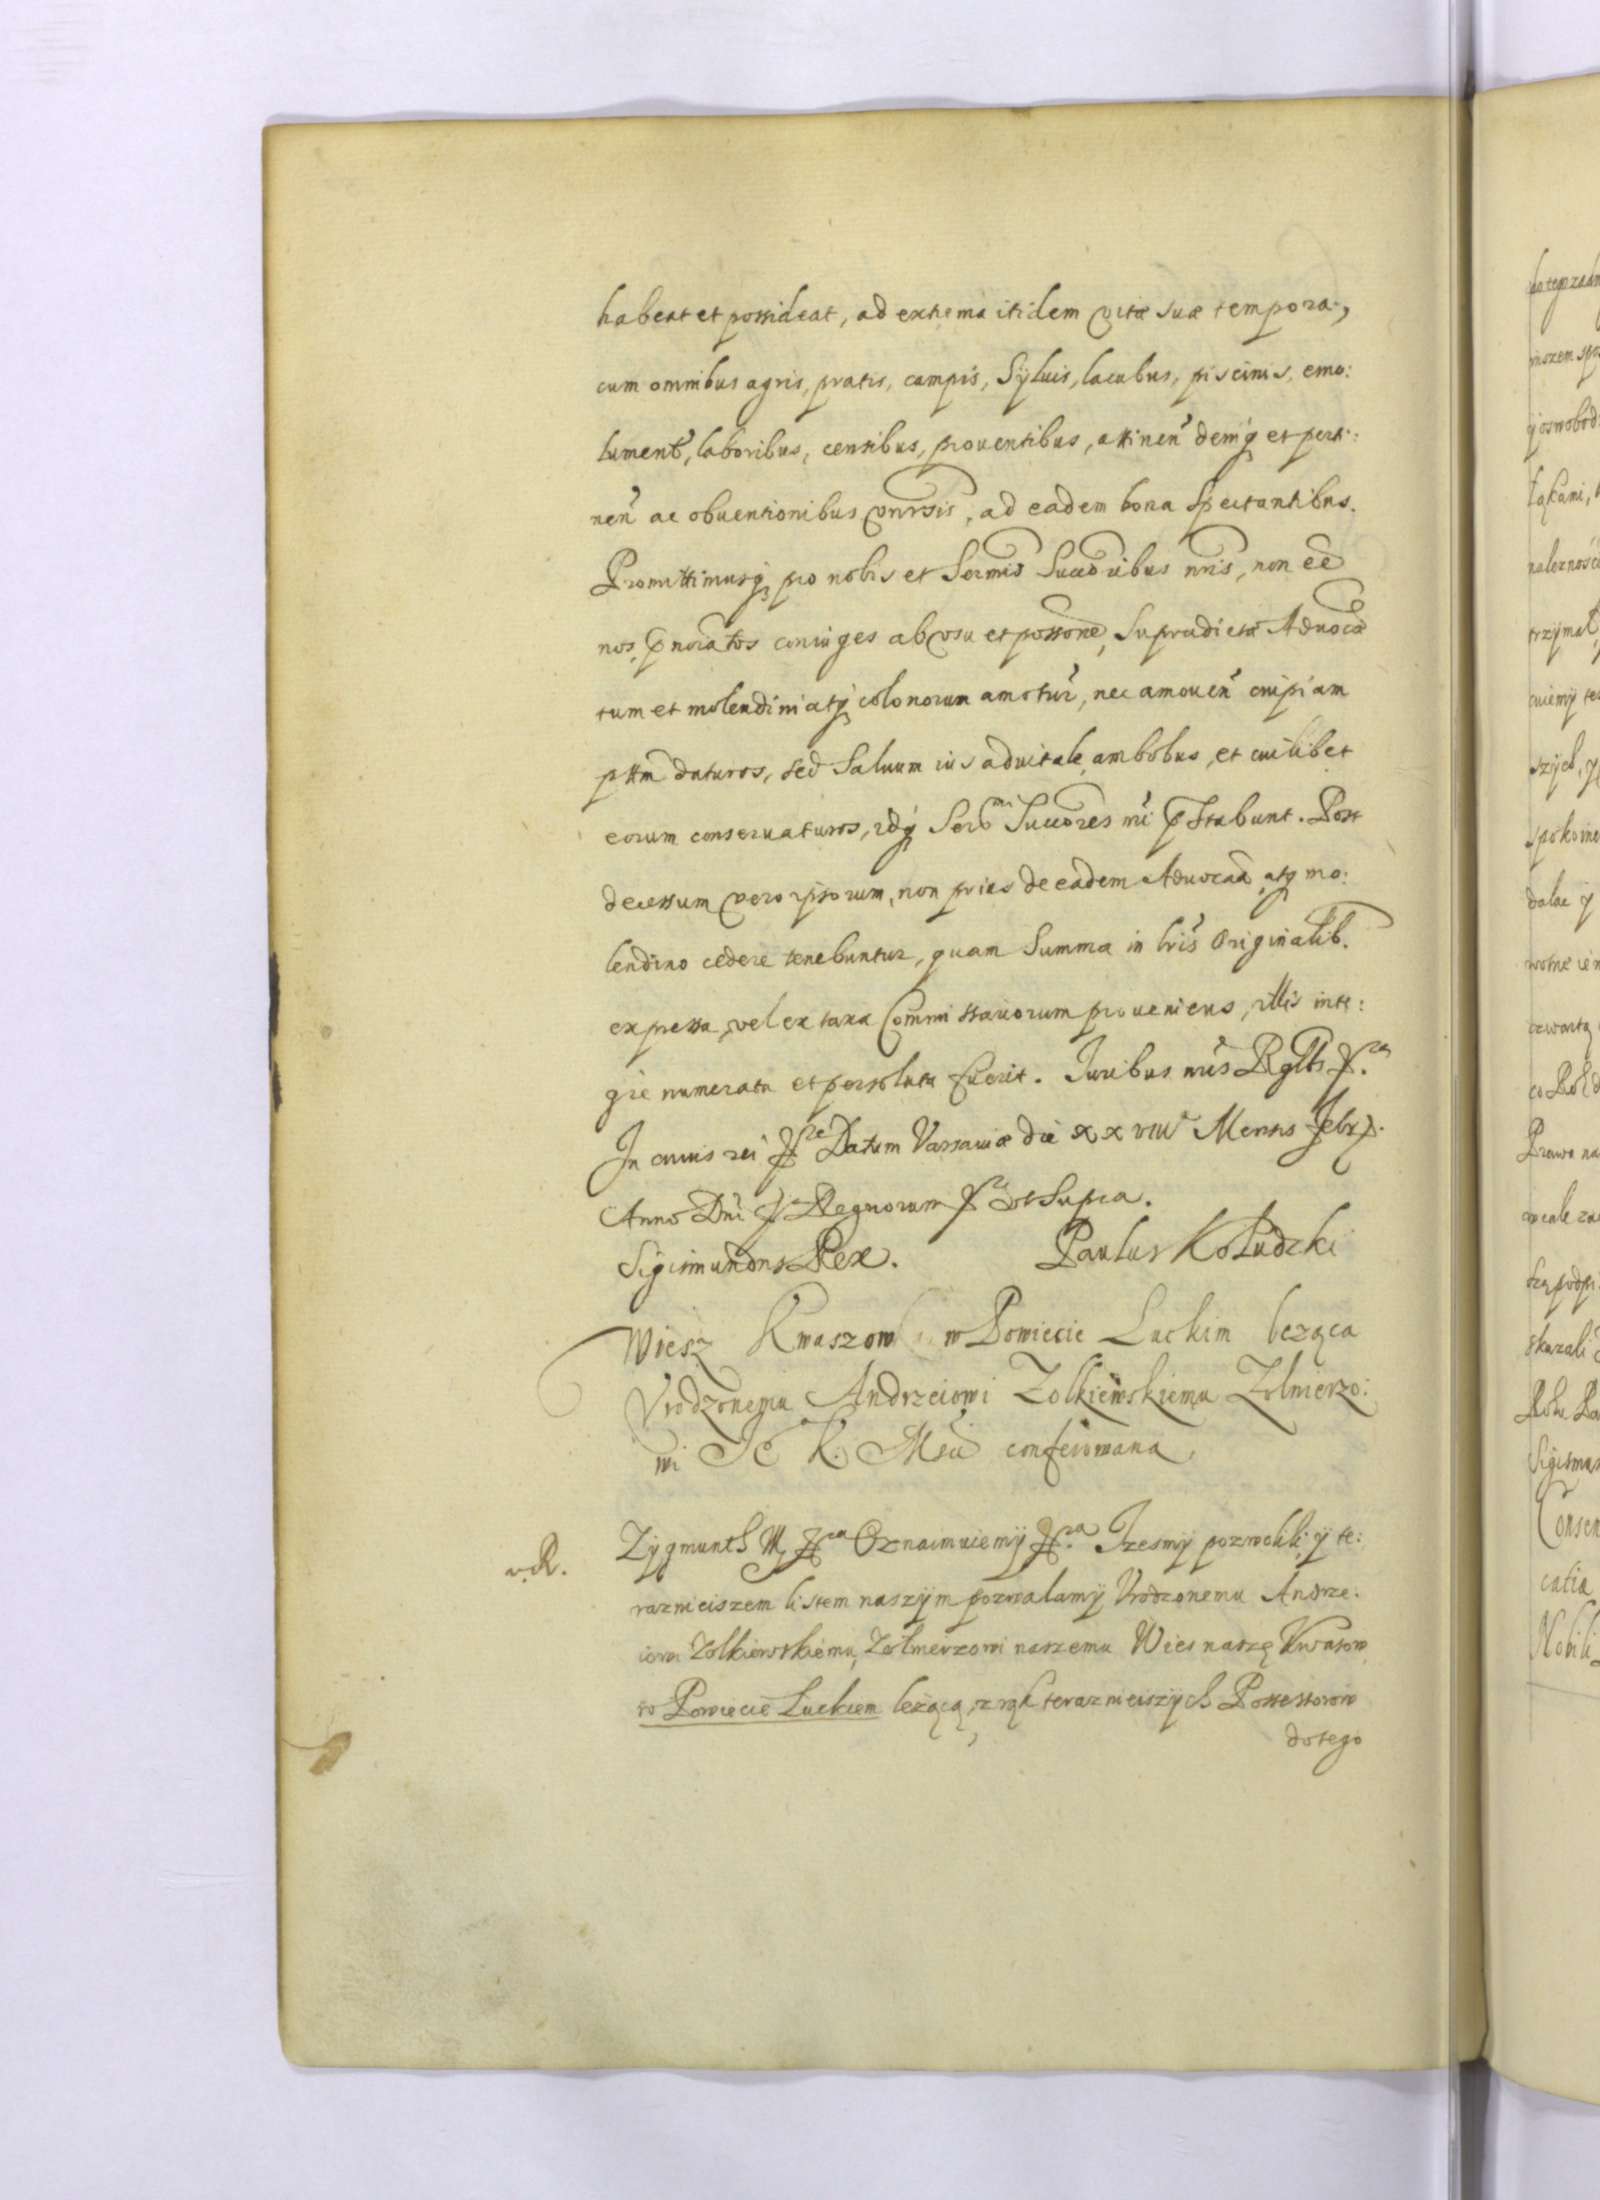 habeat et possideat, ad extrema itidem vitæ suæ tempora,
cum omnibus agris, pratis, campis, Syluis, lacubus, piscinis, emo:
lument, laboribus, censibus, prouentibus, attinen deniq et perti:
nen ac obuentionibus vnrsis, ad eadem bona Spectantibus.
Promittimusq pro nobis et Sermis Succoribus nris, non ee
nos, pnoiatos coniuges ab vsu et possone, Supradictæ Aduocæ
tum et molendini atq colonorum amotur, nec amouen cuipiam
pttm daturos, sed Saluum ius aduitale, ambobus, et cuilibet
eorum conseruaturos, idq Sermi Succores nri pstabunt. Post
decessum vero ipsorum, non prius de eadem Aduocaa, atq mo:
lendino cedere tenebuntur, quam Summa in lris Originalib.
expressa, vel ex taxa Commissariorum proueniens, illis inte:
gre numerata et persoluta fuerit. Iuribus nris Reglbs
In cuius rei Datum Varsauiæ die xxviii Mensis Febr.
Anno Dni Regnorum vt Supra.
Sigismundus Rex. Paulus Kołudzki
Wiesz Kwaszow w Powiecie Luckim leząca
Vrodzonemu Andrzeiowi Zolkiewskiemu Zolnierzo:
wi Je K. Msci conferowana.
v. R. Zygmunth Oznaimuiemÿ Izesmÿ pozwolili, ÿ te:
raznieiszem listem naszÿm pozwalamÿ Vrodzonemu Andrze:
iowi Zolkiewskiemu, Zołnierzowi naszemu Wies naszę Kwasow
w Powiecie Luckiem leżącą, z rąk teraznieiszÿch Possessorow
do tego